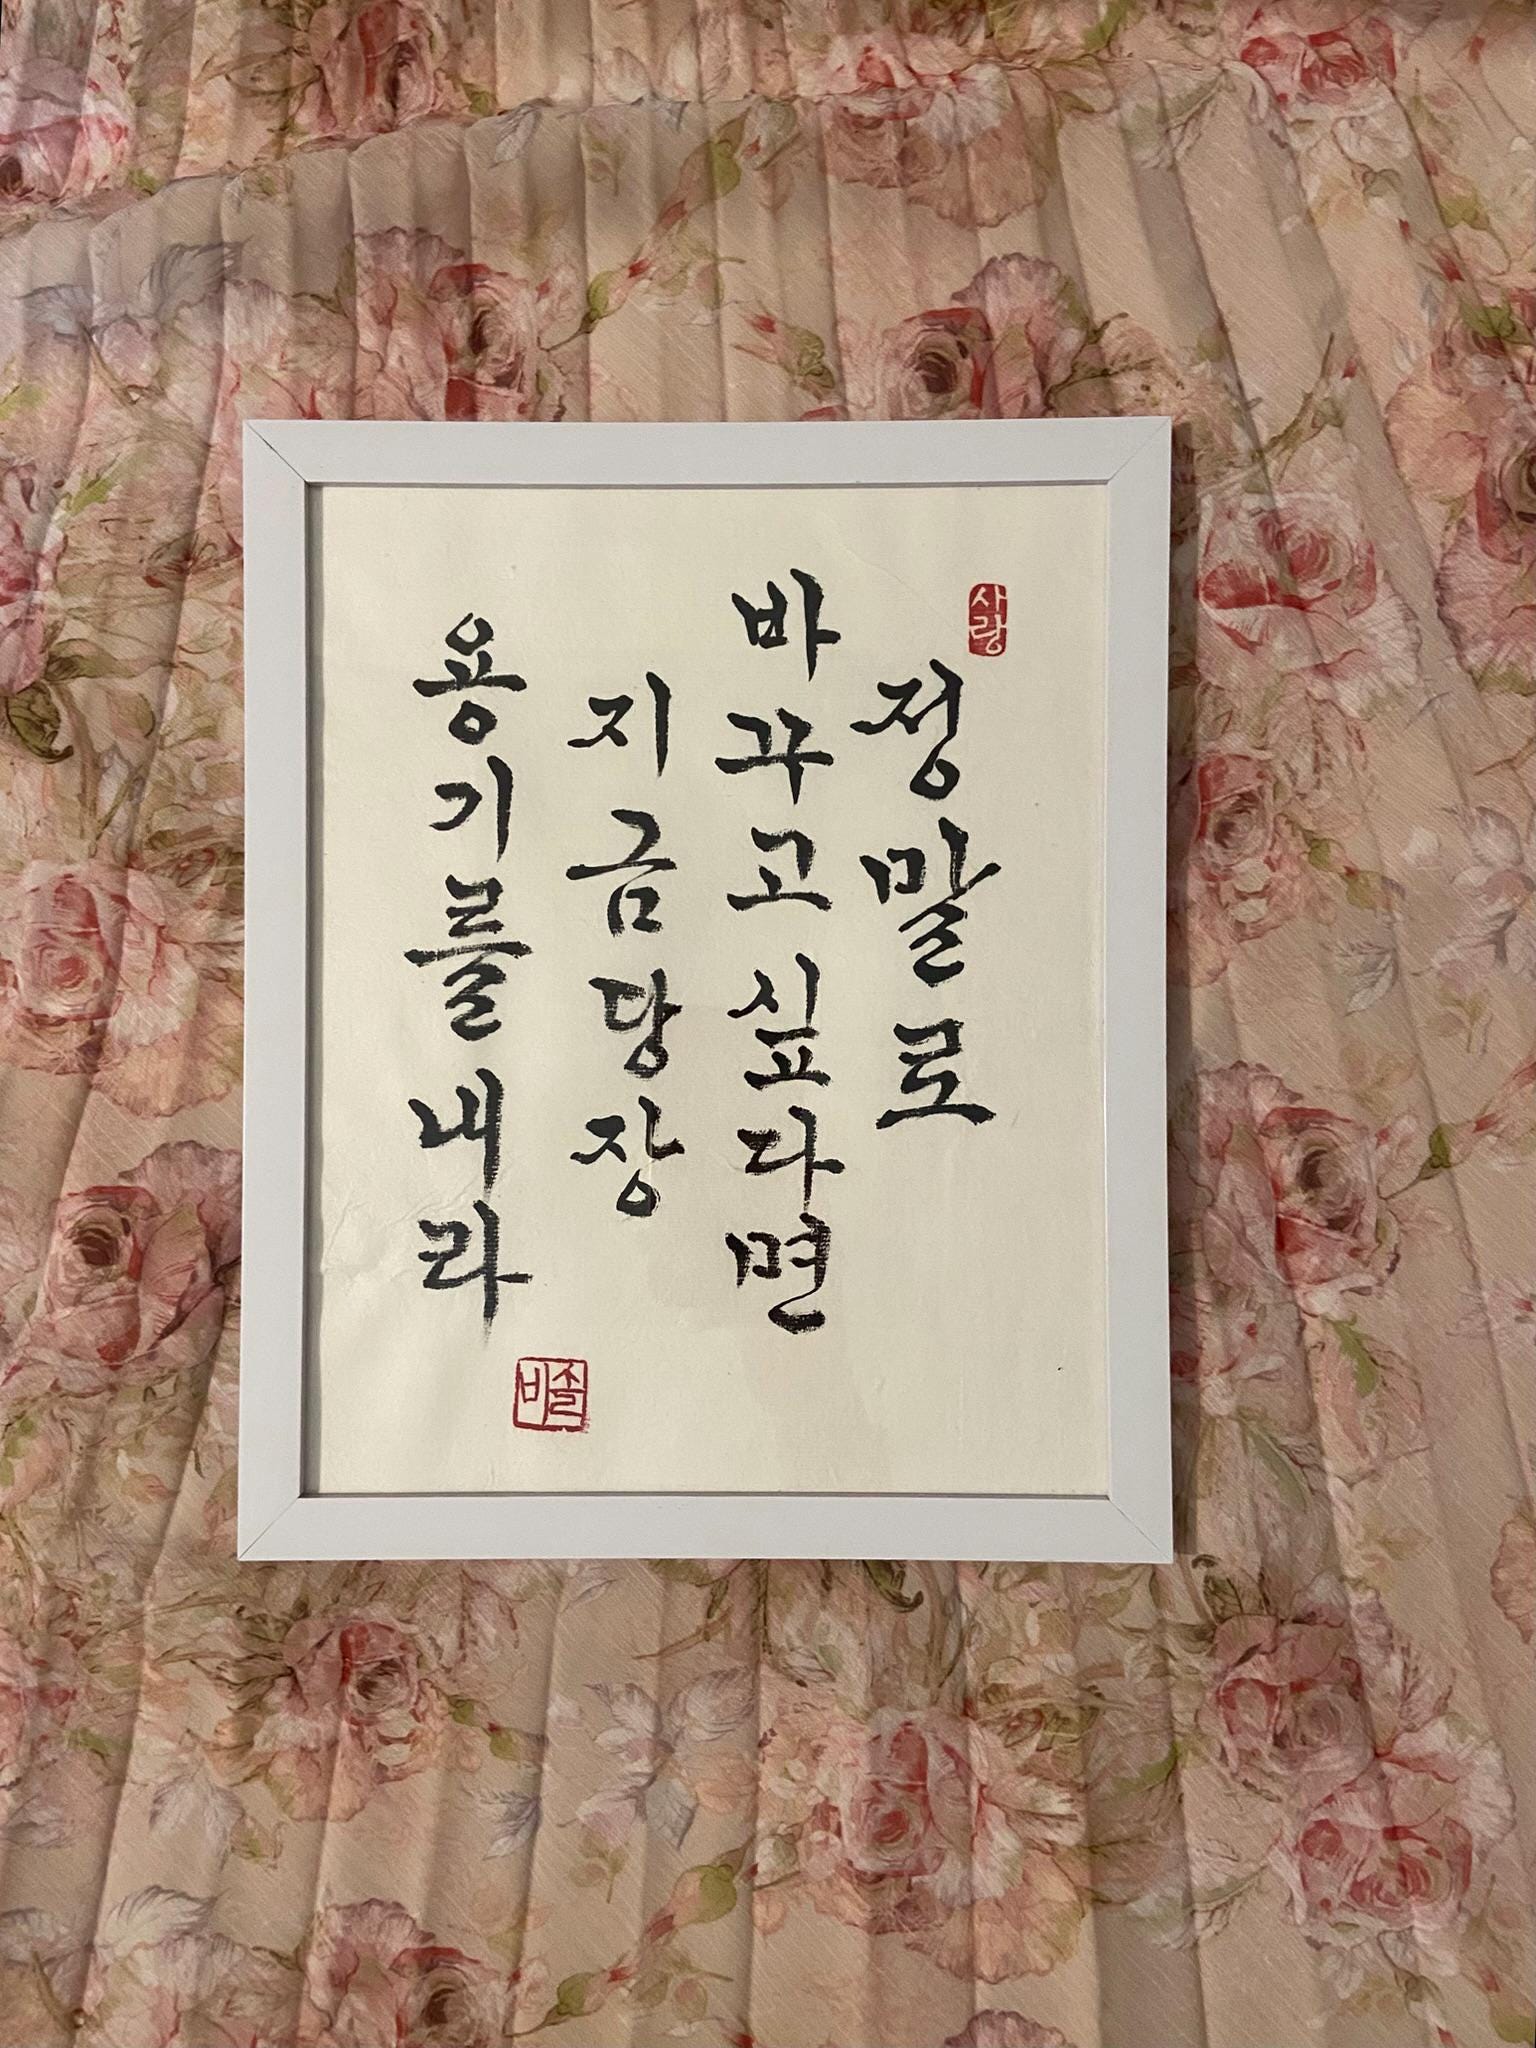 사랑
정말로
바꾸고싶다면
지금당장
용기를내라
비솔